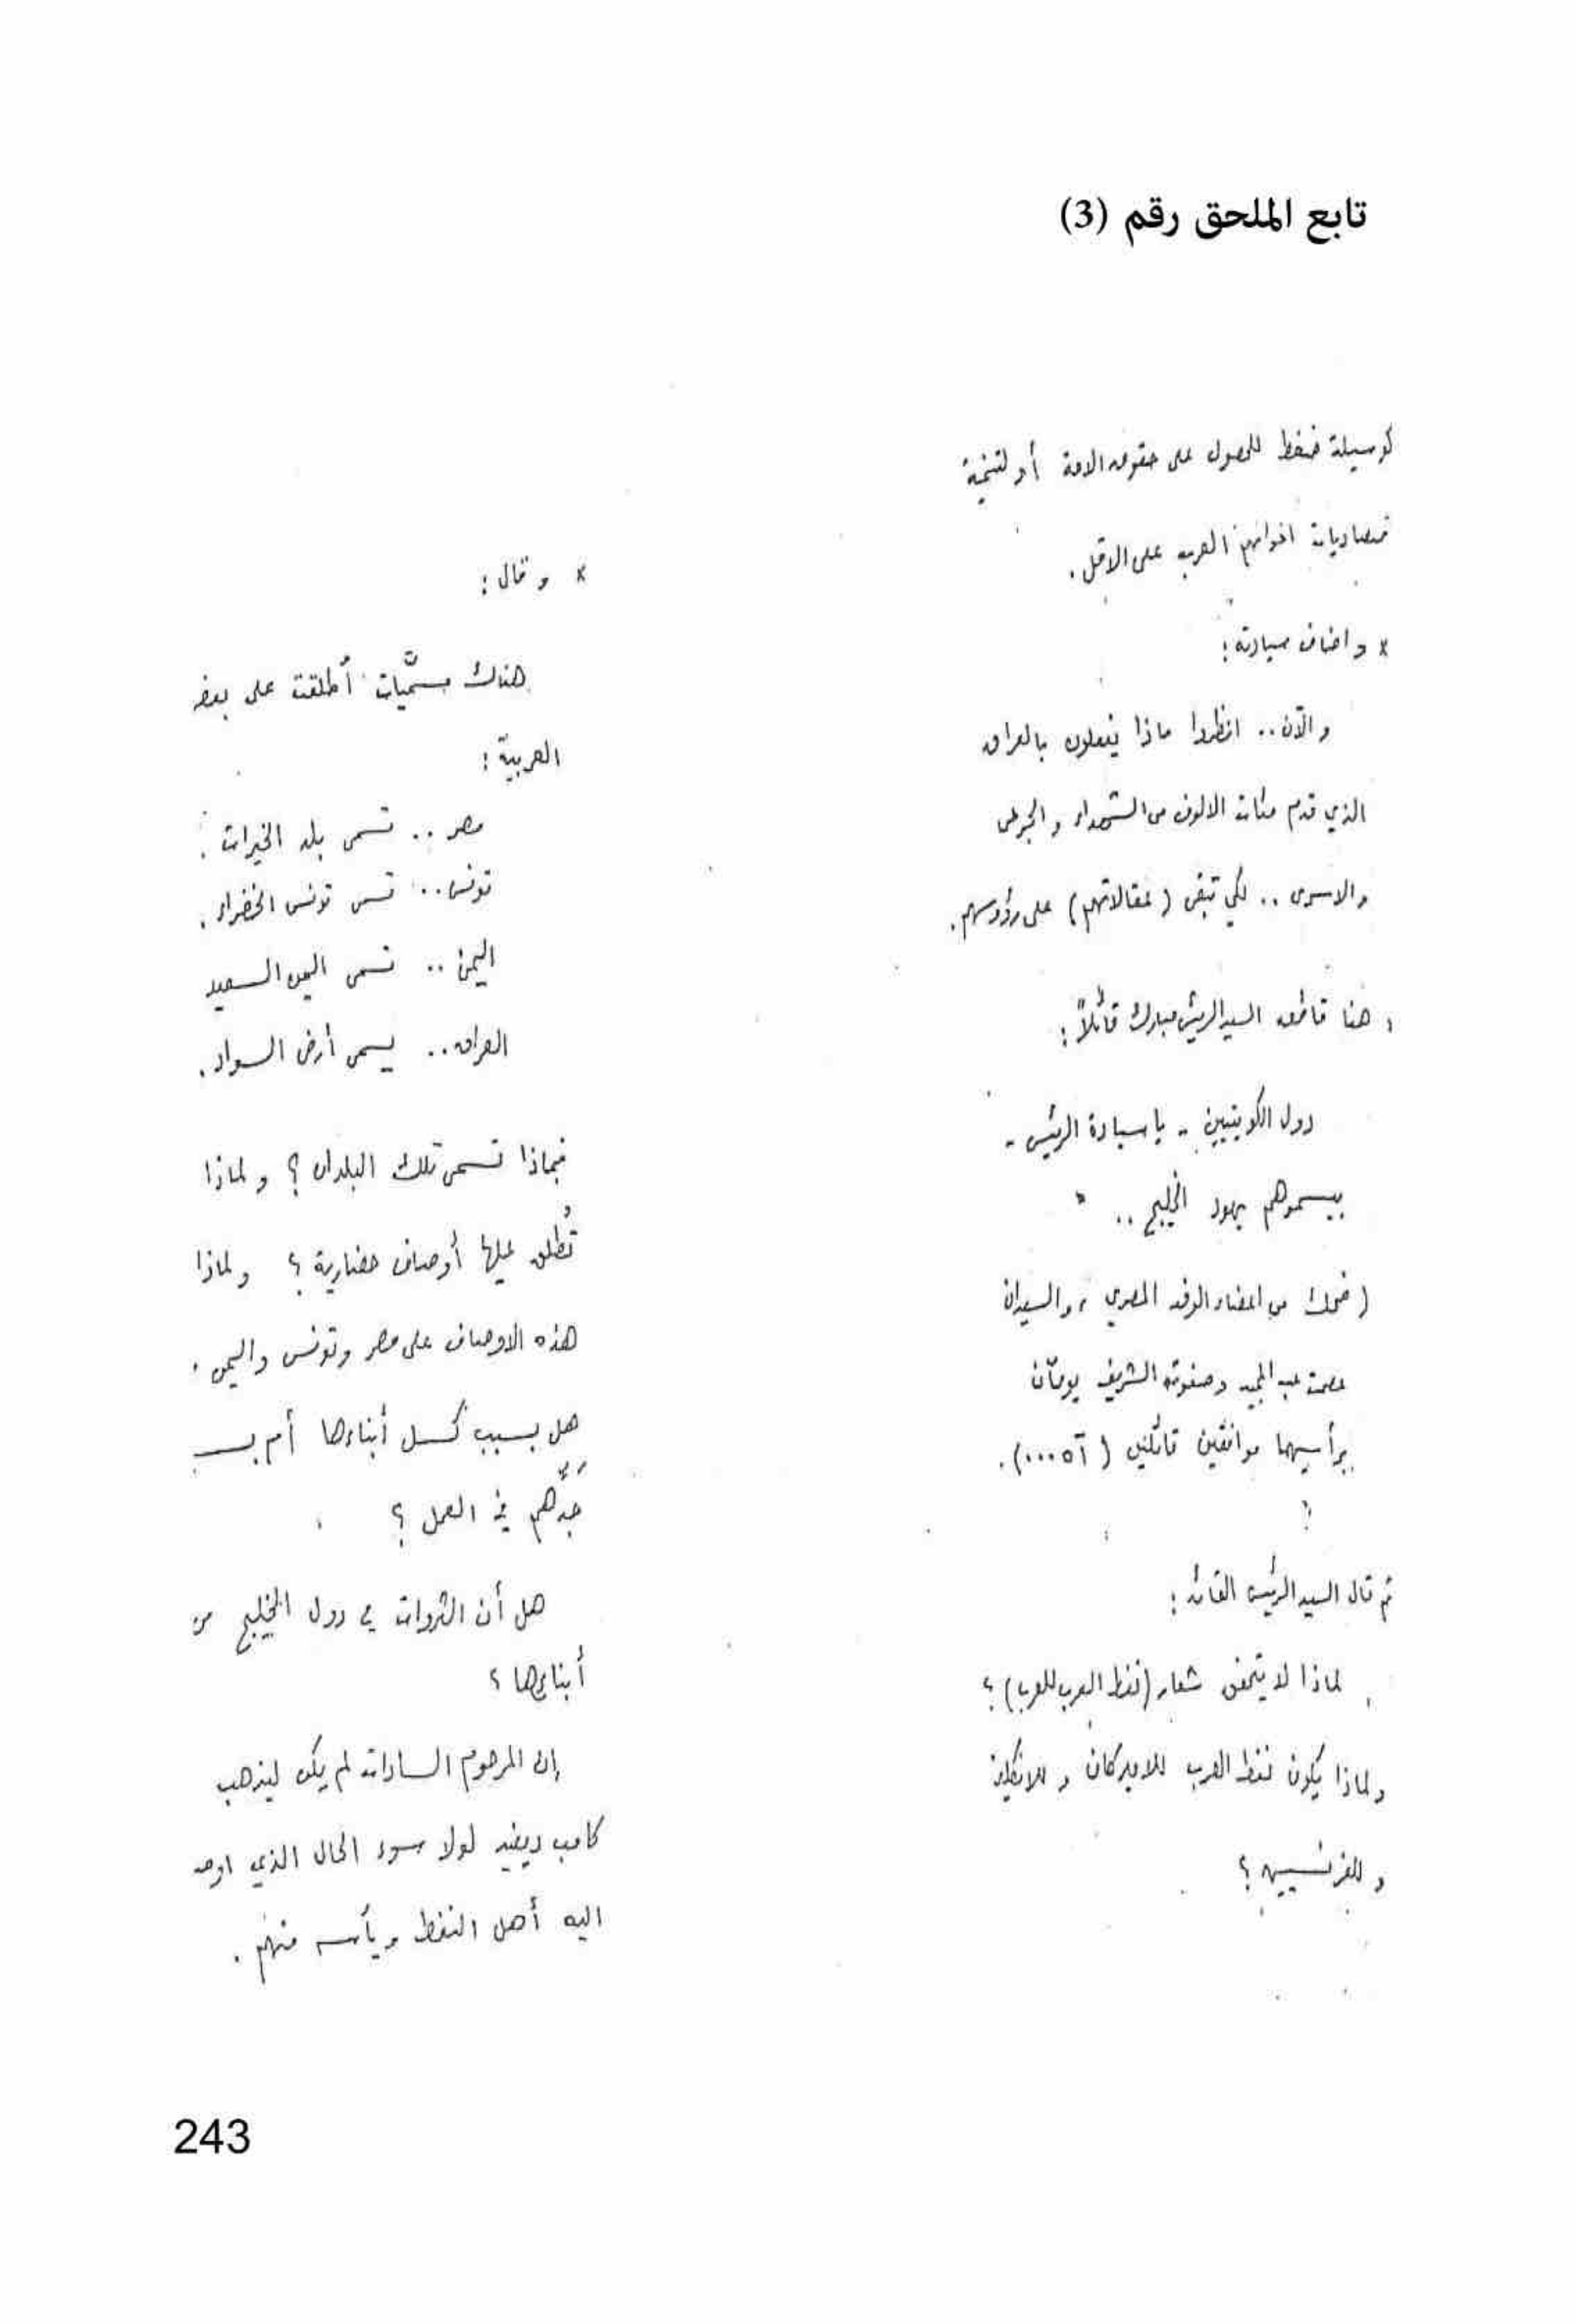 تابع الملحق رقم (3)
كوسيلة ضغط للحصول على حقوق الامة أو لتنمية
اخوانهم العرب على الاقل .
× واضاف سيادته :
والآن .. انظروا ماذا يفعلون بالعراق
الذي قدم مئات الالوف من الشهداء والجرحى
والاسرى .. لكي تبقى ( عقالاتهم ) على رؤوسهم .
هنا قاطعه السيد الرئيس مبارك قائلاً :
دول الكويتيين - يا سيادة الرئيس -
بيسموهم يهود الخليج ..
( ضحك من اعضاء الوفد المصري ، والسيدان
عصمت عبد المجيد وصفوت الشريف يومآن
برأسيهما موافقين قائلين ( آه ٠٠٠ ) .
ثم قال السيد الرئيس القائد :
لماذا لا يتحقق شعار ( نفط العرب للعرب ) ؟
ولماذا يكون نفط العرب للامريكان و للانكليز
و للفرنسيين ؟
× وقال :
هناك مسمَّيات أُطلقت على بعض
العربيّة :
مصر .. تسمى بلد الخيرات .
تونس .. تسمى تونس الخضراء .
اليمن .. تسمى اليمن السعيد
العراق .. يسمى أرض السواد .
فبماذا تسمى تلك البلدان ؟ ولماذا
تُطلق عليها أوصاف حضارية ؟ ولماذا
هذه الاوصاف على مصر وتونس واليمن .
هل بسبب كسل أبناءها أم بسبب
جِدِّهم في العمل ؟
هل أن الثروات في دول الخليج من
أبناءها ؟
إن المرحوم السادات لم يكن ليذهب
كامب ديفيد لولا سوء الحال الذي اوصـ
اليه أهل النفط ويأسه منهم .
243